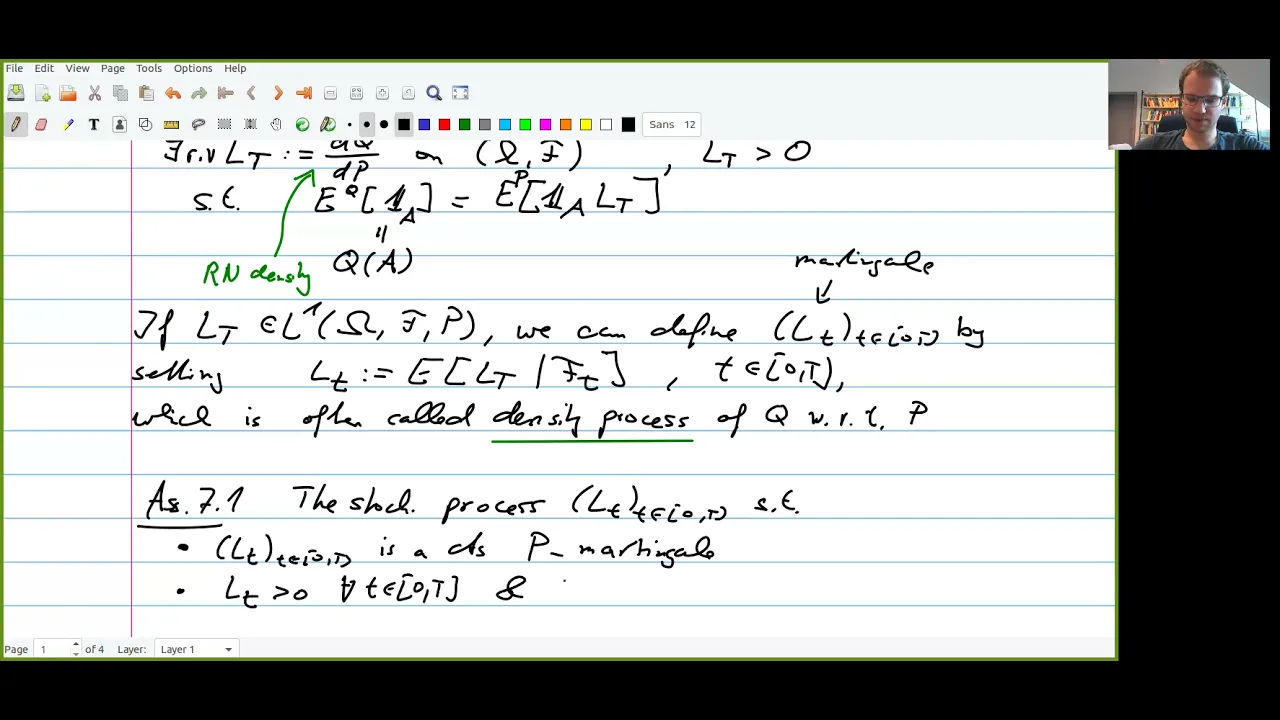 File Edit View Page Tools Options Help
Sans 12
∃ r.v L_T := dQ/dP on (Ω, F), L_T > 0
s.t. E^Q[𝟙_A] = E^P[𝟙_A L_T]
"
RN density Q(A)
martingale
If L_T ∈ L^1(Ω, F, P), we can define (L_t)_{t∈[0,T]} by
setting L_t := E[L_T | F_t], t∈[0,T],
which is often called density process of Q w.r.t. P
As. 7.1 The stoch. process (L_t)_{t∈[0,T]} s.t.
• (L_t)_{t∈[0,T]} is a cts P-martingale
• L_t >0 ∀ t∈[0,T] &
Page 1 of 4 Layer: Layer 1